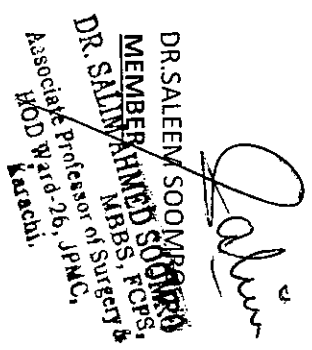 Salim
DR.SALEEM SOOMRO
MEMBER
DR. SALIM AHMED SOOMRO
MBBS, FCPS,
Associate Professor of Surgery &
HOD Ward-26, JPMC,
Karachi.